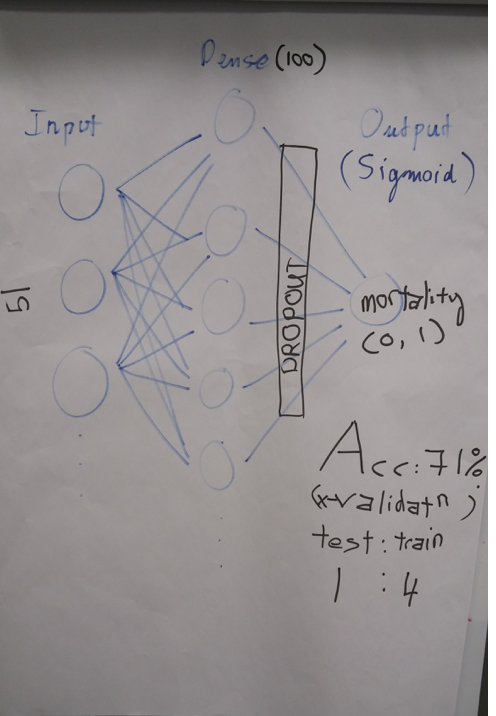 Dense (100)
Input
Output
(Sigmoid)
51
DROPOUT
mortality
(0, 1)
Acc: 71%
(x-validatⁿ)
test: train
1 : 4